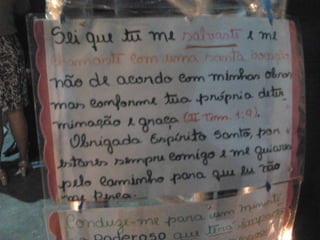 Sei que tu me salvaste e me
chamaste com uma santa vocação
não de acordo com minhas obras
mas conforme tua própria deter
minação e graça (II Tim. 1:9).
Obrigada Espírito Santo, por
estares sempre comigo e me guiares
pelo caminho para que eu não
me perca.
Conduze-me para um
poderoso que